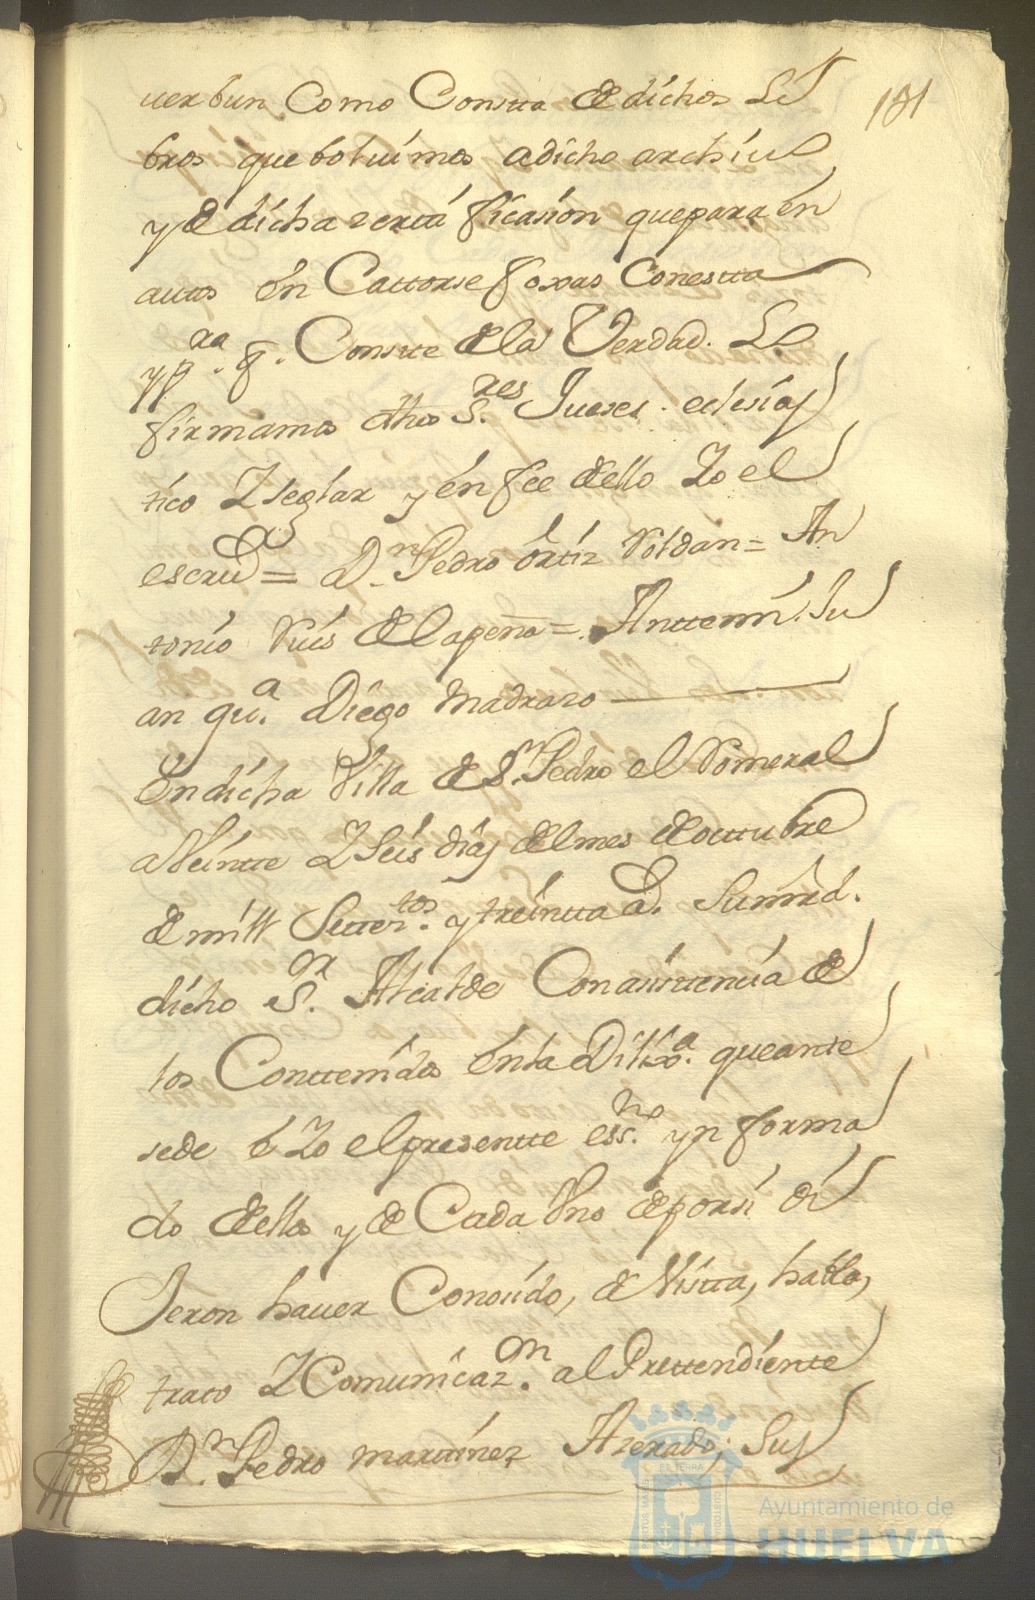 181
verbun Como Constta de dichos Li
bros que bolvimos a dicho archivo
y de dicha zerti ficasion que para en
auttos en Cattorse foxas Con estta
y pª. q. Constte de la Verdad. Lo
firmamos dhos S.res Jueses eclesias
tico Y seglar y en fee dello Yo el
escriv.º = D.n Pedro ortiz Roldan = An
tonio Ruis de la peña = Antte mi. Ju
an gu.ª Diego Madraso
En dicha Villa de S.n Pedro el Romeral
a Veintte Y Seis dias del mes de octtubre
de mill Settez.tos y treintta a.º Su mrd.
dicho S.or Alcalde Con asisttencia de
los Conttenidos en la Dilix.ª que antte
sede e Yo el presentte ess.no ynforma
do dellos y de Cada Vno de por si di
Jeron haver Conosido, de Vistta, habla,
trato Y Comunicaz.on al Prettendiente
D.n Pedro marttinez Azerado; Sus
Ayuntamiento de
HUELVA